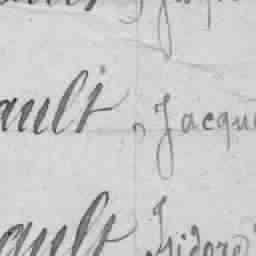 ault, Jacqu
ault Isidore